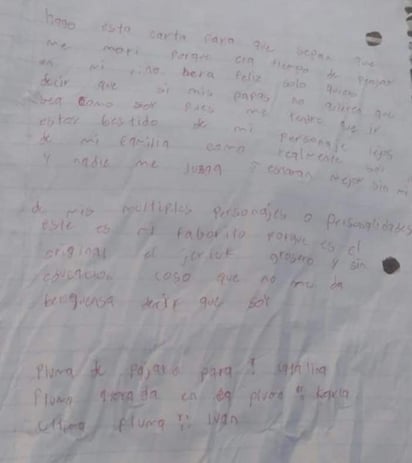 hago esta carta para que sepan que
me mori porque era tiempo de pensar
en mi, no bera feliz solo quiero
decir que si mis papas no quieren que
sea como soy pues me tendre que ir
estar bestido de mi personaje lejos
de mi familia como realmente soi
y nadie me juzga y estaran mejor sin mi
de mis multiples personajes o personalidades
este es mi faborito porque es el
original el grosero y sin
educacion cosa que no me da
berguensa decir que soi
Pluma de pajaro para
Pluma en la pluma
ultima pluma Ivan